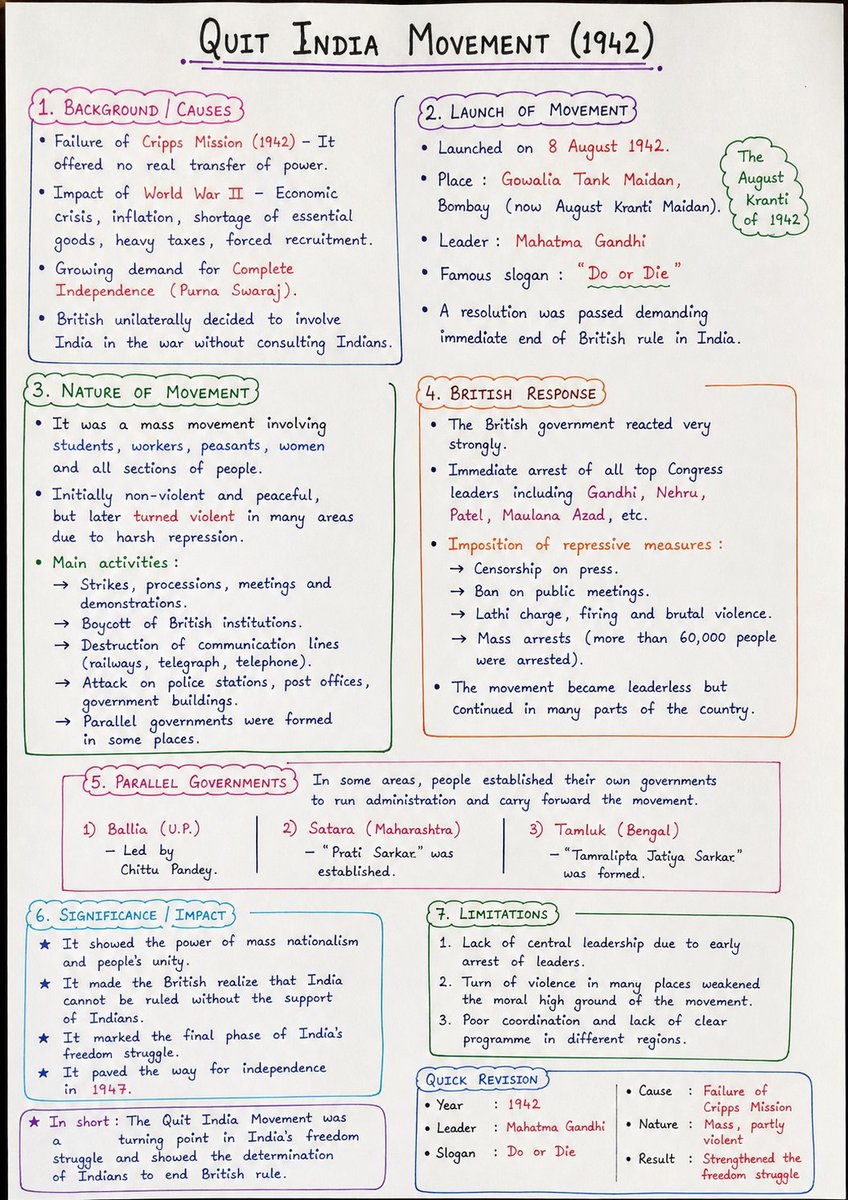 QUIT INDIA MOVEMENT (1942)
1. BACKGROUND / CAUSES
• Failure of Cripps Mission (1942) – It
offered no real transfer of power.
• Impact of World War II – Economic
crisis, inflation, shortage of essential
goods, heavy taxes, forced recruitment.
• Growing demand for Complete
Independence (Purna Swaraj).
• British unilaterally decided to involve
India in the war without consulting Indians.
2. LAUNCH OF MOVEMENT
• Launched on 8 August 1942.
• Place : Gowalia Tank Maidan,
Bombay (now August Kranti Maidan).
• Leader : Mahatma Gandhi
• Famous slogan : "Do or Die"
• A resolution was passed demanding
immediate end of British rule in India.
The
August
Kranti
of 1942
3. NATURE OF MOVEMENT
• It was a mass movement involving
students, workers, peasants, women
and all sections of people.
• Initially non-violent and peaceful,
but later turned violent in many areas
due to harsh repression.
• Main activities :
→ Strikes, processions, meetings and
demonstrations.
→ Boycott of British institutions.
→ Destruction of communication lines
(railways, telegraph, telephone).
→ Attack on police stations, post offices,
government buildings.
→ Parallel governments were formed
in some places.
4. BRITISH RESPONSE
• The British government reacted very
strongly.
• Immediate arrest of all top Congress
leaders including Gandhi, Nehru,
Patel, Maulana Azad, etc.
• Imposition of repressive measures :
→ Censorship on press.
→ Ban on public meetings.
→ Lathi charge, firing and brutal violence.
→ Mass arrests (more than 60,000 people
were arrested).
• The movement became leaderless but
continued in many parts of the country.
5. PARALLEL GOVERNMENTS
In some areas, people established their own governments
to run administration and carry forward the movement.
1) Ballia (U.P.)
– Led by
Chittu Pandey.
2) Satara (Maharashtra)
– "Prati Sarkar" was
established.
3) Tamluk (Bengal)
– "Tamralipta Jatiya Sarkar"
was formed.
6. SIGNIFICANCE / IMPACT
★ It showed the power of mass nationalism
and people's unity.
★ It made the British realize that India
cannot be ruled without the support
of Indians.
★ It marked the final phase of India's
freedom struggle.
★ It paved the way for independence
in 1947.
★ In short : The Quit India Movement was
a turning point in India's freedom
struggle and showed the determination
of Indians to end British rule.
7. LIMITATIONS
1. Lack of central leadership due to early
arrest of leaders.
2. Turn of violence in many places weakened
the moral high ground of the movement.
3. Poor coordination and lack of clear
programme in different regions.
QUICK REVISION
• Year : 1942
• Leader : Mahatma Gandhi
• Slogan : Do or Die
• Cause : Failure of
Cripps Mission
• Nature : Mass, partly
violent
• Result : Strengthened the
freedom struggle